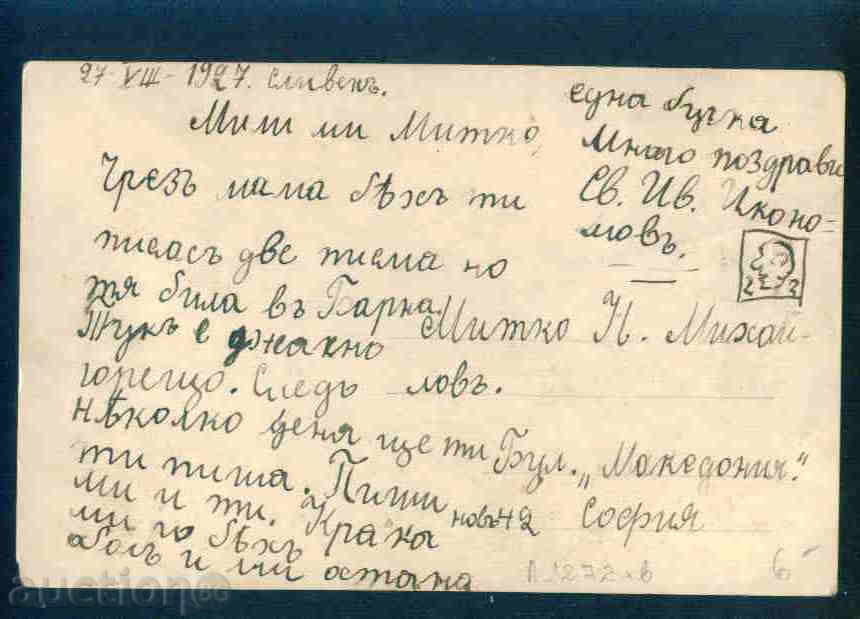 27-VIII-1927. Сливенъ.
Мили ми Митко,
Чрезъ мама бѣхъ ти
писалъ две писма но
тя била въ Варна.
Тукъ е джахно
горещо. Следъ
нѣколко деня ще ти
ти пиша. Пиши
ми и ти. Крака
ми го бѣхъ
болъ и ми остана
една бучка
Много поздрави
Св. Ив. Иконо-
мовъ.
2 2
Митко Н. Михай-
ловъ.
Бул. „Македония."
новъ 42 София
П 1272 в 6
auction